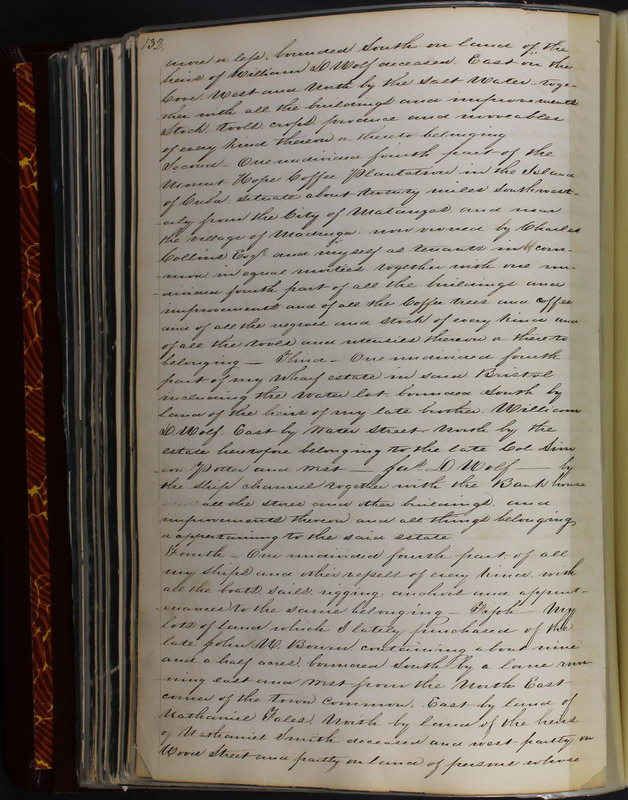 132
more or less, bounded South on land of the
heirs of William D'Wolf deceased. East on the
Cove. West and North by the Salt Water. toge-
ther with all the buildings and improvements
Stock. tools. crops. produce and moveables
of every kind thereon or thereto belonging
Second - One undivided fourth part of the
Mount Hope Coffee Plantation in the Island
of Cuba. Situate about twenty miles Southwest-
erly from the City of Matanzas and near
the village of Madruga. now owned by Charles
Collins Esqr. and myself as tenants in com-
mon in equal moities. together with one un-
divided fourth part of all the buildings and
improvements and of all the Coffee trees and coffee
and of all the negroes and stock of every kind and
of all the tools and utensils thereon or thereto
belonging — Third - One undivided fourth
part of my wharf estate in said Bristol
including the Water lot. bounded South by
land of the heirs of my late brother. William
D'Wolf. East by Water Street North by the
estate heretofore belonging to the late Col. Sim
eon Potter and West — D'Wolf — by
the ship channel together with the Bank house
all the stores and other buildings. and
improvements thereon and all things belonging
or appertaining to the said estate
Fourth - One undivided fourth part of all
my ships and other vessels of every kind. with
all the boats. sails. rigging. anchors and appurt-
enances to the same belonging - Fifth - My
lots of land which I lately purchased of the
late John W. Bourn containing about nine
and a half acres. bounded South by a lane run
ning east and west from the North East
corner of the town common. East by land of
Nathaniel Fales. North by land of the heirs
of Nathaniel Smith deceased and west partly on
Wood Street and partly on land of persons whose